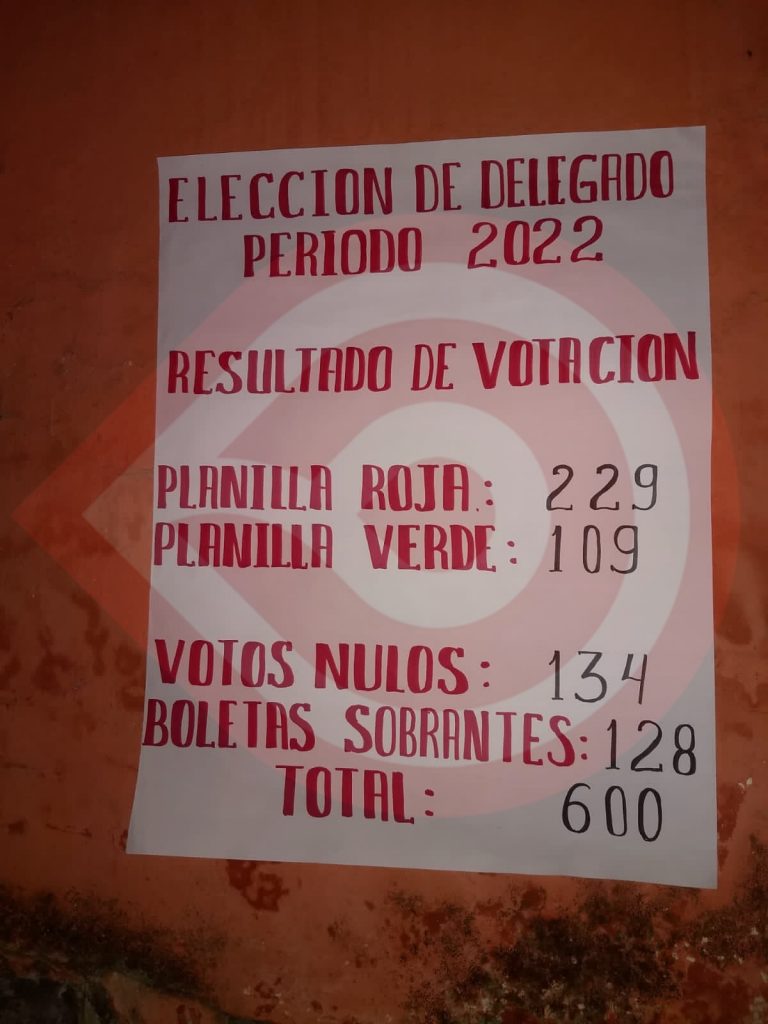 ELECCION DE DELEGADO
PERIODO 2022
RESULTADO DE VOTACION
PLANILLA ROJA: 229
PLANILLA VERDE: 109
VOTOS NULOS: 134
BOLETAS SOBRANTES: 128
TOTAL: 600